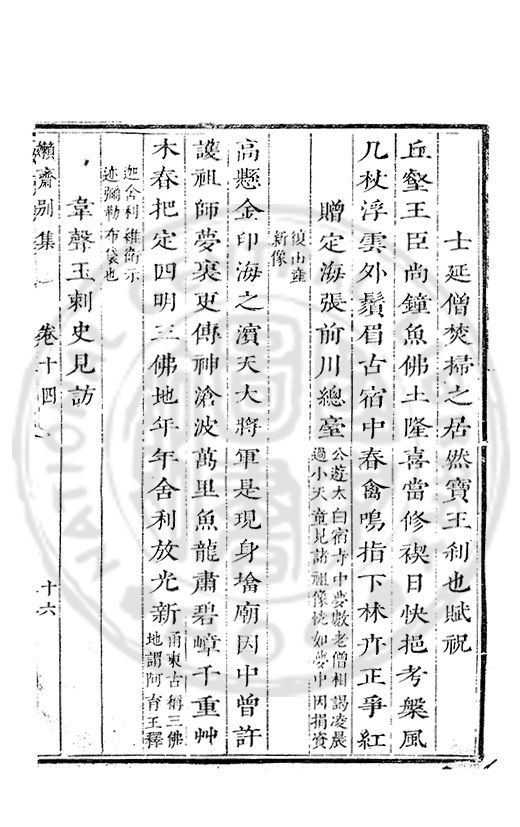 士延僧焚掃之居然寶王刹也賦祝
丘壑王臣尚鐘魚佛土隆喜當修禊日快挹考槃風
几杖浮雲外鬚眉古宿中春禽鳴指下林卉正爭紅
贈定海張前川總臺
公遊太白宿寺中夢數老僧相謁凌晨
過小天童見諸祖像恍如夢中因捐資
復山產
新像
高懸金印海之濵天大將軍是現身墖廟因中曾許
護祖師夢裏更傳神滄波萬里魚龍肅碧嶂千重艸
木春把定四明三佛地年年舍利放光新
甬東古稱三佛
地謂阿育王釋
迦舍利維衛示
迹彌勒布袋也
韋聲玉刺史見訪
嬾齋别集
卷十四
十六